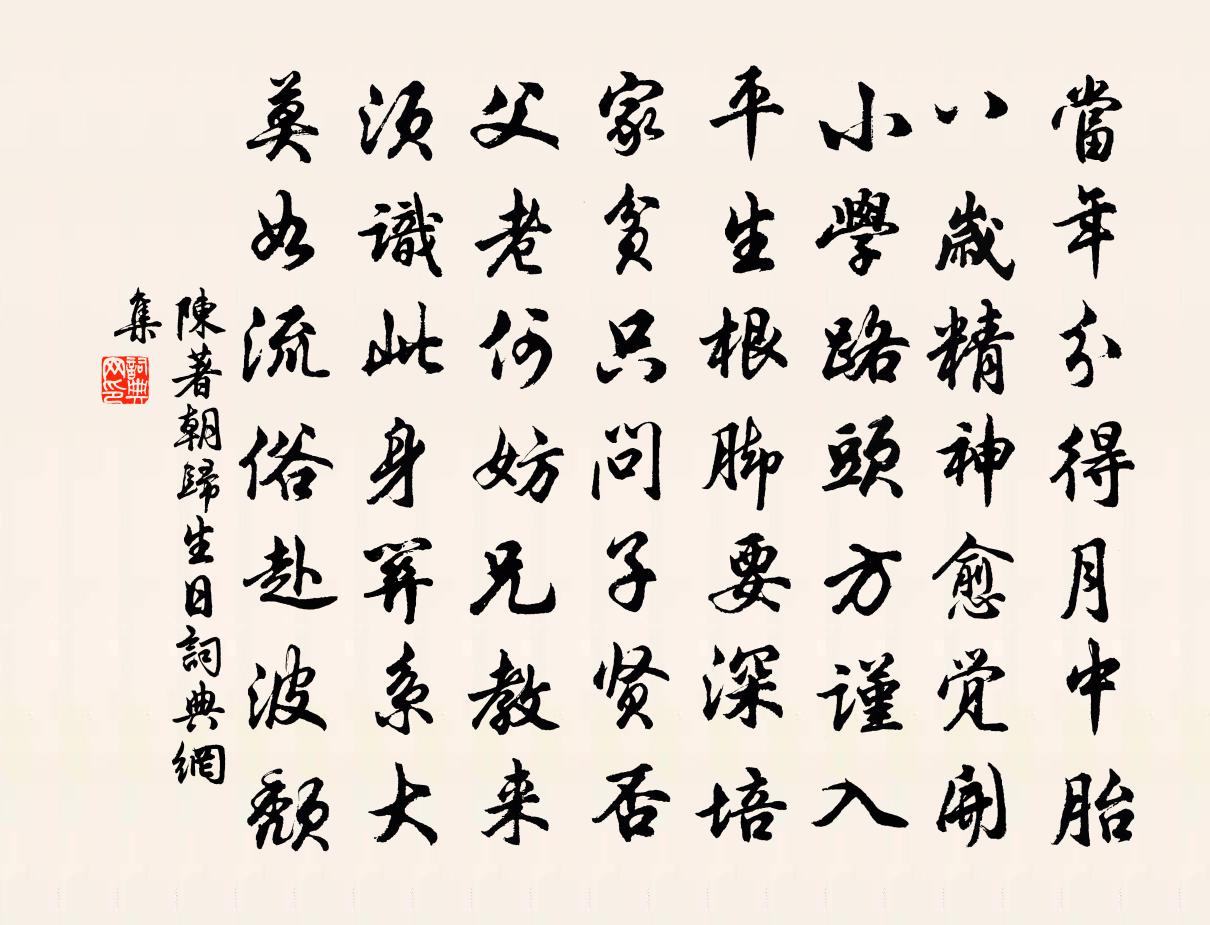 當年分得月中胎
八歲精神愈覺開
小學路頭方謹入
平生根脚要深培
家貧只問子賢否
父老何妨兄教來
須識此身算系大
莫如流俗赴波頹
陳著朝歸生日詞典網
集
詞典網印